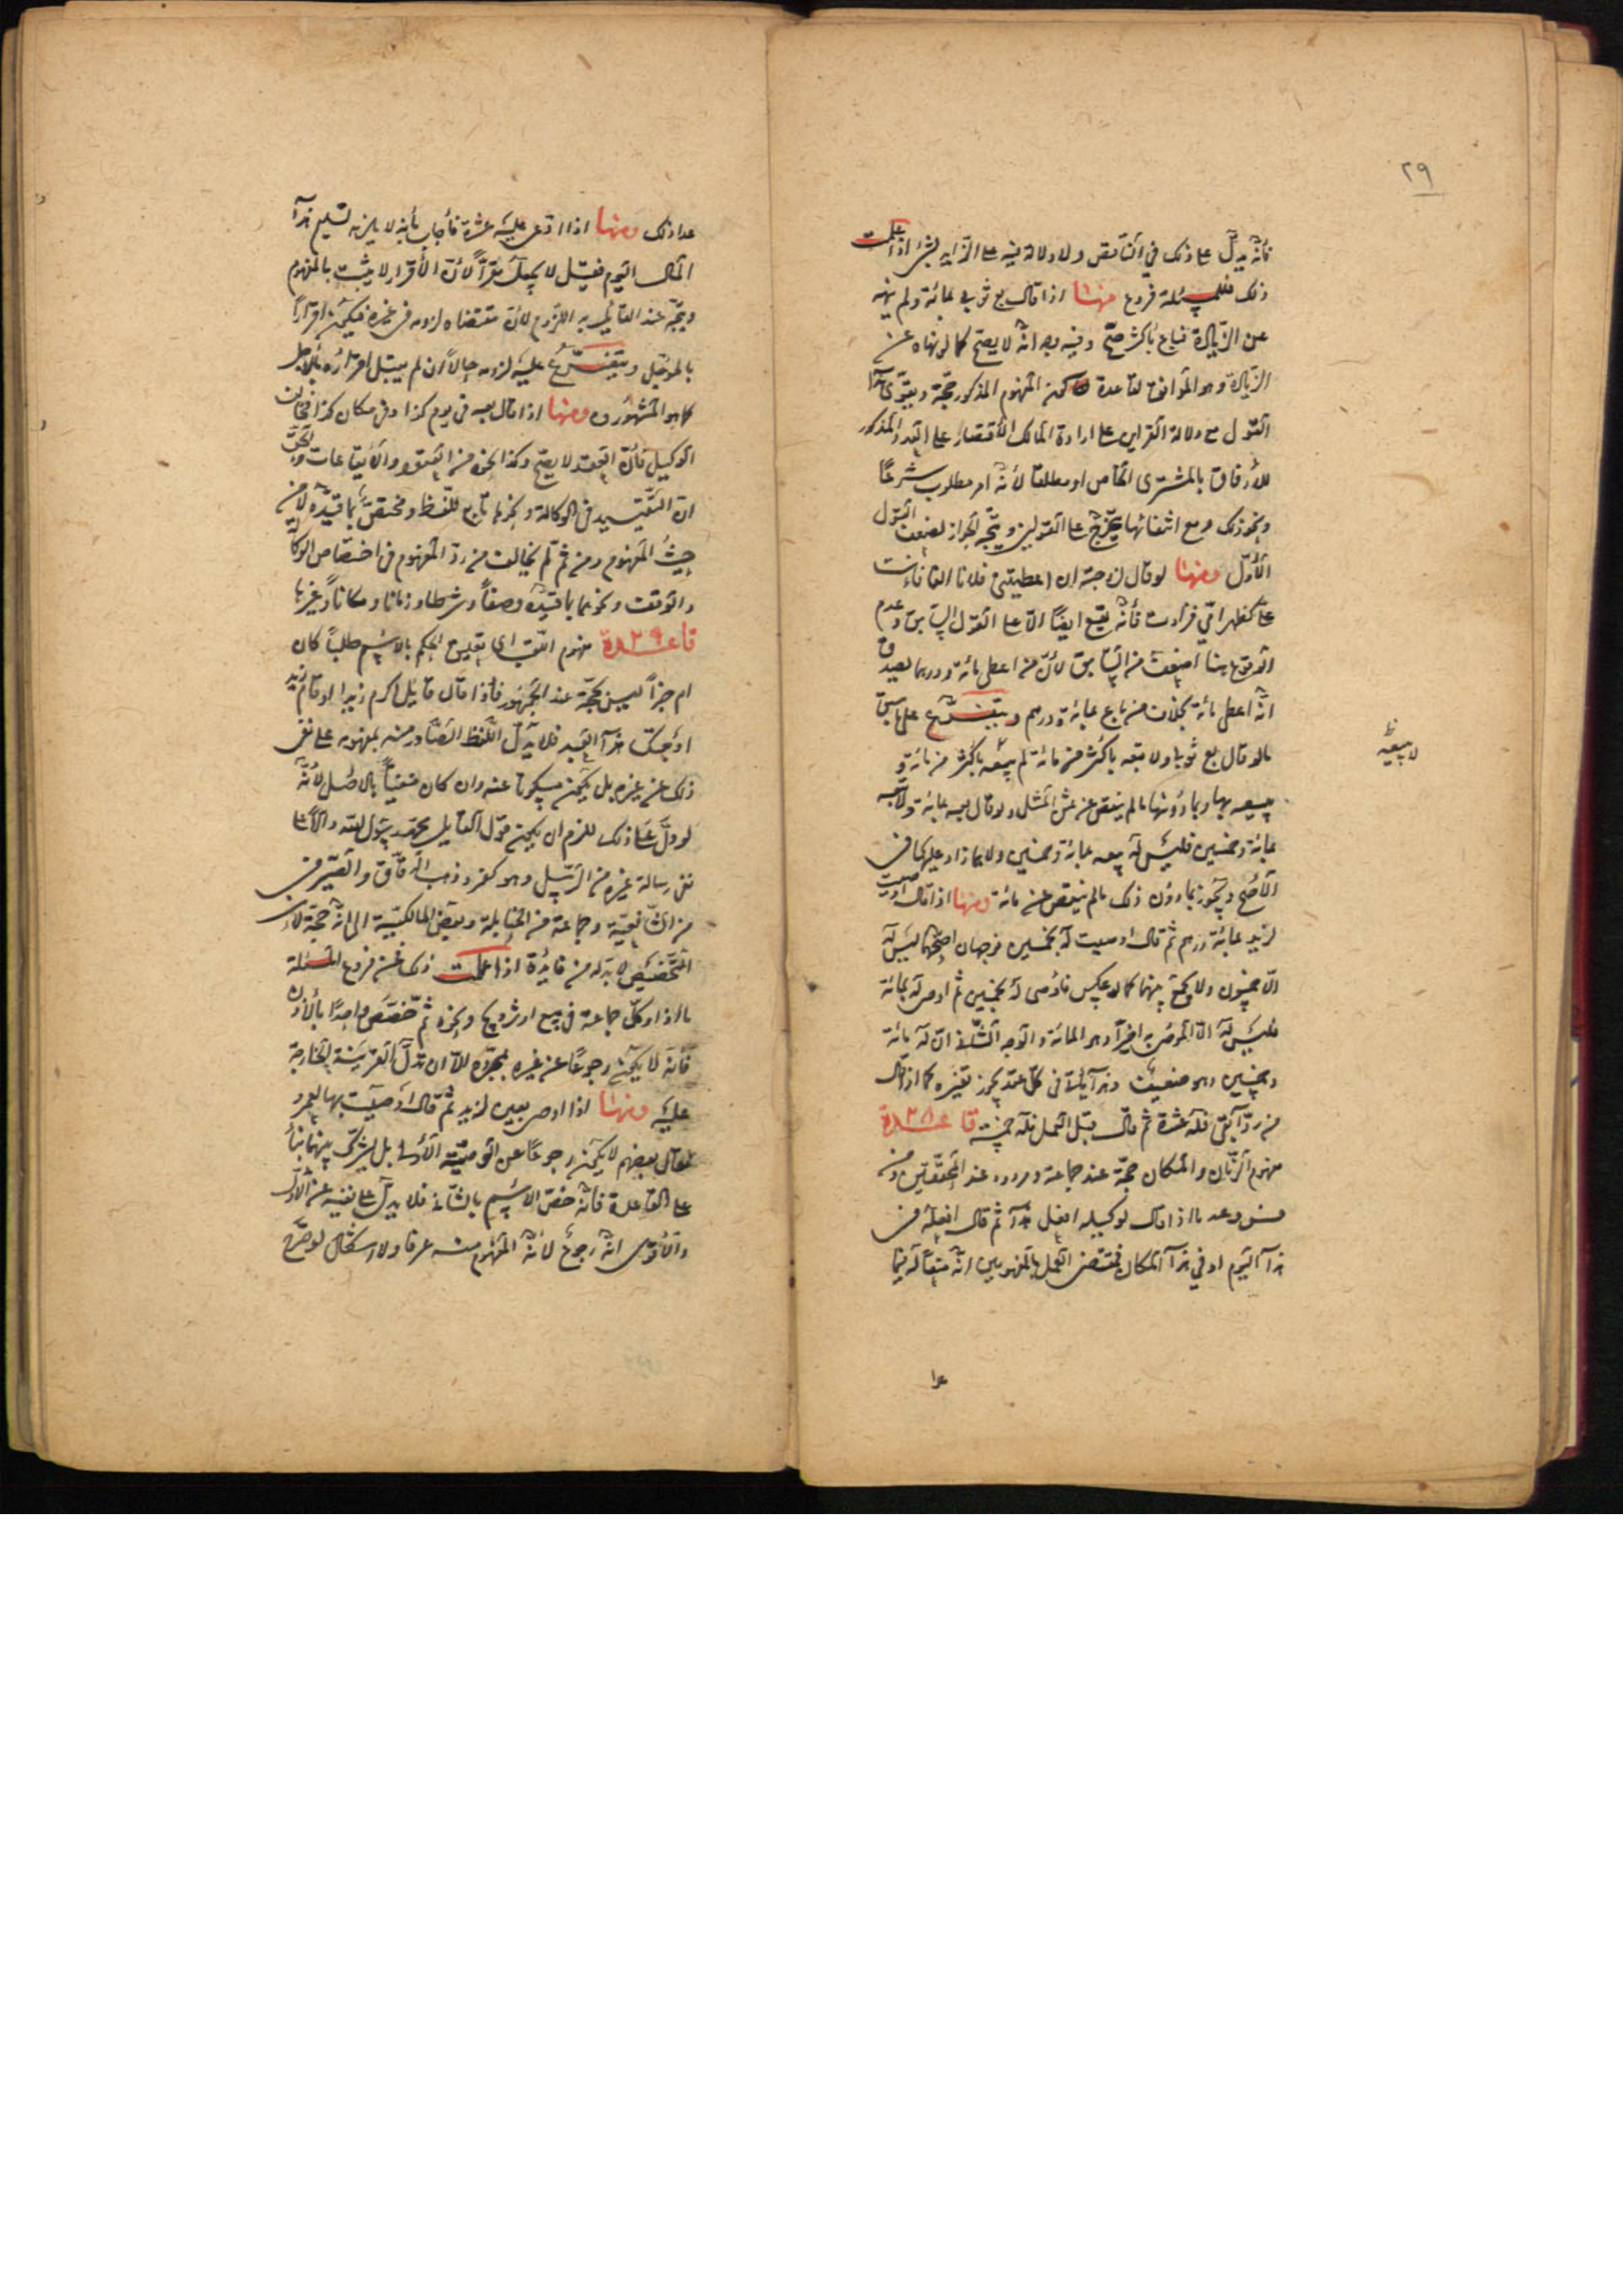 ٢٩
فأنّه يدلّ على ذلك في الناقص ولا دلالة فيه على الزايد بشئ اذا علمت
ذلك فللمسئلة فروع منها اذا قال بع ثوبي بمائة ولم ينهه
عن الزيادة فباع بأكثر صحّ وفيه وجه انّه لا يصحّ كما لو نهاه عن
الزيادة وهو الموافق لقاعدة كون المفهوم المذكور حجّة ويقوّى هذا
القول مع دلالة القراين على ارادة المالك الاقتصار على القدر المذكور
للأرفاق بالمشترى الخاص او مطلقا لأنّه امر مطلوب شرعًا
ونحو ذلك ومع انتفائها يتخرّج على القولين ويتّجه الجواز لضعف القول
الأوّل ومنها لو قال لزوجته ان اعطيتني فلانا الفا فأنت
عليّ كظهر امّي فزادت فأنّه يقع ايضًا الّا على القول السابق وعدم
الوقوع هنا اضعف من السابق لأنّ من اعطى مائة ودرهما يصدق
انّه اعطى مائة بخلاف من باع بمائة ودرهم ويتفرّع على ما سبق
ما لو قال بع ثوبا ولا تبعه بأكثر من مائة لم يبعه بأكثر من مائة و
لا يبيعه ظ
يبيعه بها وبما دونها ما لم ينقص عن ثمن المثل ولو قال بعه بمائة ولا تبعه
بمائة وخمسين فليس له بيعه بمائة وخمسين ولا بما زاد عليها في
الأصحّ ويجوز بما دون ذلك ما لم ينقص عن مائة ومنها اذا قال اوصيت
لزيد بمائة درهم ثم قال اوصيت له بخمسين فوجهان اصحّهما ليس له
الّا خمسون ولا يجمع بينهما كما لو عكس فأوصى له بخمسين ثم اوصى له بمائة
فليس له الّا الموصى به اخيرًا وهو المائة والوجه الثاني انّ له مائة
وخمسين وهو ضعيف وهذا يأتي في كلّ عقد يجوز تغييره كما اذا قال
من ردّ آبقى فله عشرة ثم قال قبل العمل فله خمسة قاعدة ٣٨
مفهوم الزمان والمكان حجّة عند جماعة ومردود عند المحقّقين ومن
فروعه ما اذا قال لوكيله افعل هذا ثم قال افعله في
هذا اليوم او في هذا المكان فمقتضى العمل بالمفهومين انّه منع له فيما
عدا
عدا ذلك ومنها اذا ادّعى عليه عشرة فأجاب بأنه لا يلزمه تسليم هذا
المال اليوم فقيل لا يجعل مقرًّا لأنّ الأقرار لا يثبت بالمفهوم
ويتّجه عند القائل به اللزوم لأنّ مقتضاه لزومه في غيره فيكون اقرارًا
بالمؤجّل ويتفرّع عليه لزومه حالًّا ان لم يقبل اقراره بالأجل
كما هو المشهور ومنها اذا قال بعه في يوم كذا وفي مكان كذا فخالف
الوكيل فأنّ العقد لا يصحّ وكذا نحوه من العقود والأيقاعات والحقّ
انّ التقييد في الوكالة ونحوها تابع للّفظ ومختصّ بما قيّده لا من
حيث المفهوم ومن ثمّ لم يخالف من ردّ المفهوم في اختصاص الوكالة
والوقف ونحوهما بما قيّده وصفًا وشرطا وزمانا ومكانا وغيرها
قاعدة ٣٩ مفهوم اللقب اى تعليق الحكم بالاسم طلبًا كان
ام خبرًا ليس بحجّة عند الجمهور فأذا قال قائل اكرم زيدا او قام زيد
او نحو هذا القيد فلا يدلّ اللفظ الصّادر منه بمفهومه على نفى
ذلك عن غيره بل يكون مسكوتا عنه وان كان منفيًّا بالاصل لأنّه
لو دلّ على ذلك للزم ان يكون قول القايل محمّد رسول الله دالًّا على
نفى رسالة غيره من الرسل وهو كفر وذهب الدقّاق والصيرفى
من الشافعيّة وجماعة من الحنابلة وبعض المالكيّة الى انّه حجّة لأن
التخصيص لا بدّ له من فائدة اذا علمت ذلك فمن فروع المسئلة
ما اذا وكّل جماعة في بيع او تزويج ونحوه ثمّ خصّص واحدًا بالأذن
فأنّه لا يكون رجوعًا عن غيره بمجرّده الّا ان تدلّ القرينة الخارجة
عليه ومنها اذا اوصى بعين لزيد ثمّ قال اوصيت بها لعمرو
فقال بعضهم لا يكون رجوعًا عن الوصيّة الأولى بل يشترك بينهما بناءً
على القاعدة فأنّه خصّ الاسم بالثاني فلا يدلّ على نفيه عن الاوّل
والأقوى انّه رجوع لأنّه المفهوم منه عرفا ولا اشكال لو صرّح